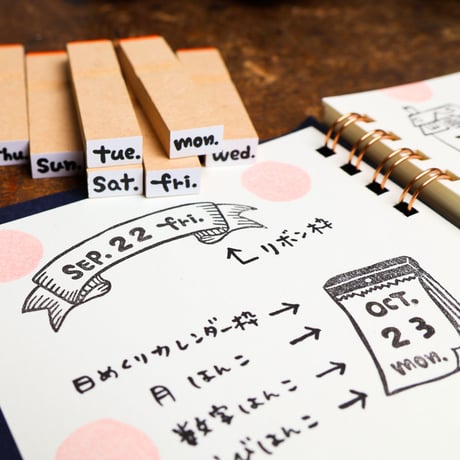 tue.
mon.
hu.
Sun.
Wed.
Sat.
fri.
SEP. 22 fri.
リボン枠
OCT.
23
mon.
日めくりカレンダー枠
月 はんこ
数字はんこ
びはんこ